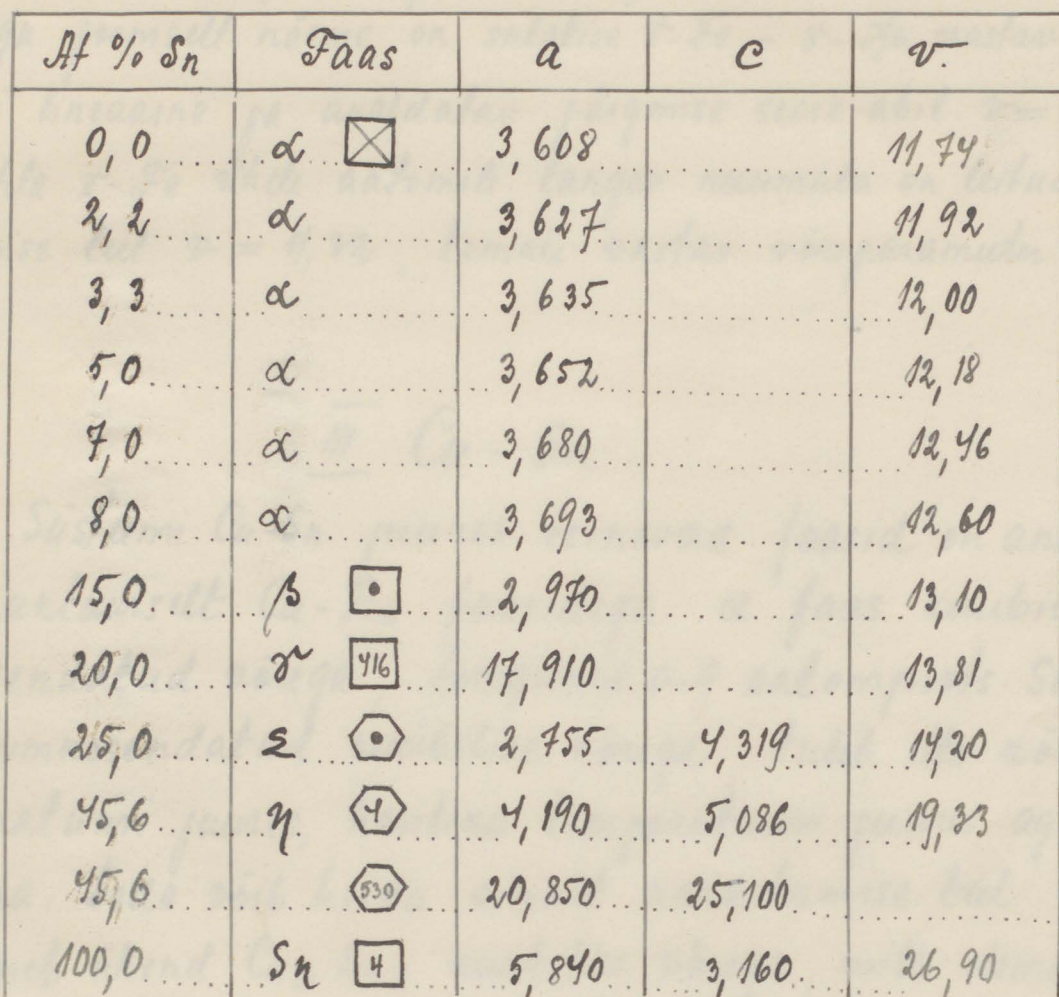 At % Sn Faas a c v.
0,0 α 3,608 11,74
2,2 α 3,627 11,92
3,3 α 3,635 12,00
5,0 α 3,652 12,18
7,0 α 3,680 12,46
8,0 α 3,693 12,60
15,0 β 2,970 13,10
20,0 γ 416 17,910 13,81
25,0 ε 2,755 4,319 14,20
45,6 η 4 4,190 5,086 19,33
45,6 530 20,850 25,100
100,0 Sn 4 5,840 3,160 26,90